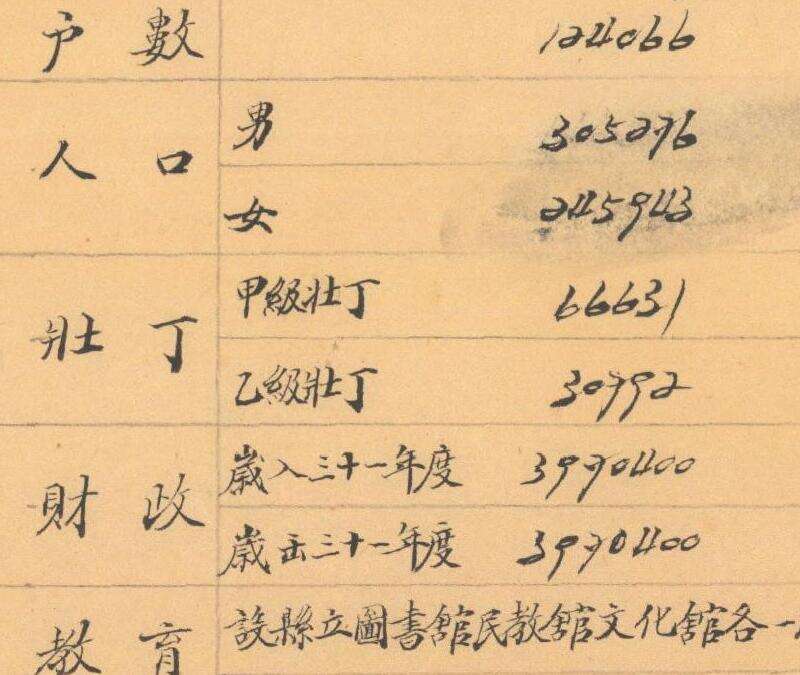 户數 124066
人口 男 305276
女 245943
壯丁 甲級壯丁 66631
乙級壯丁 30792
財政 歲入三十一年度 3970400
歲出三十一年度 3970400
教育 設縣立圖書館民教館文化館各一